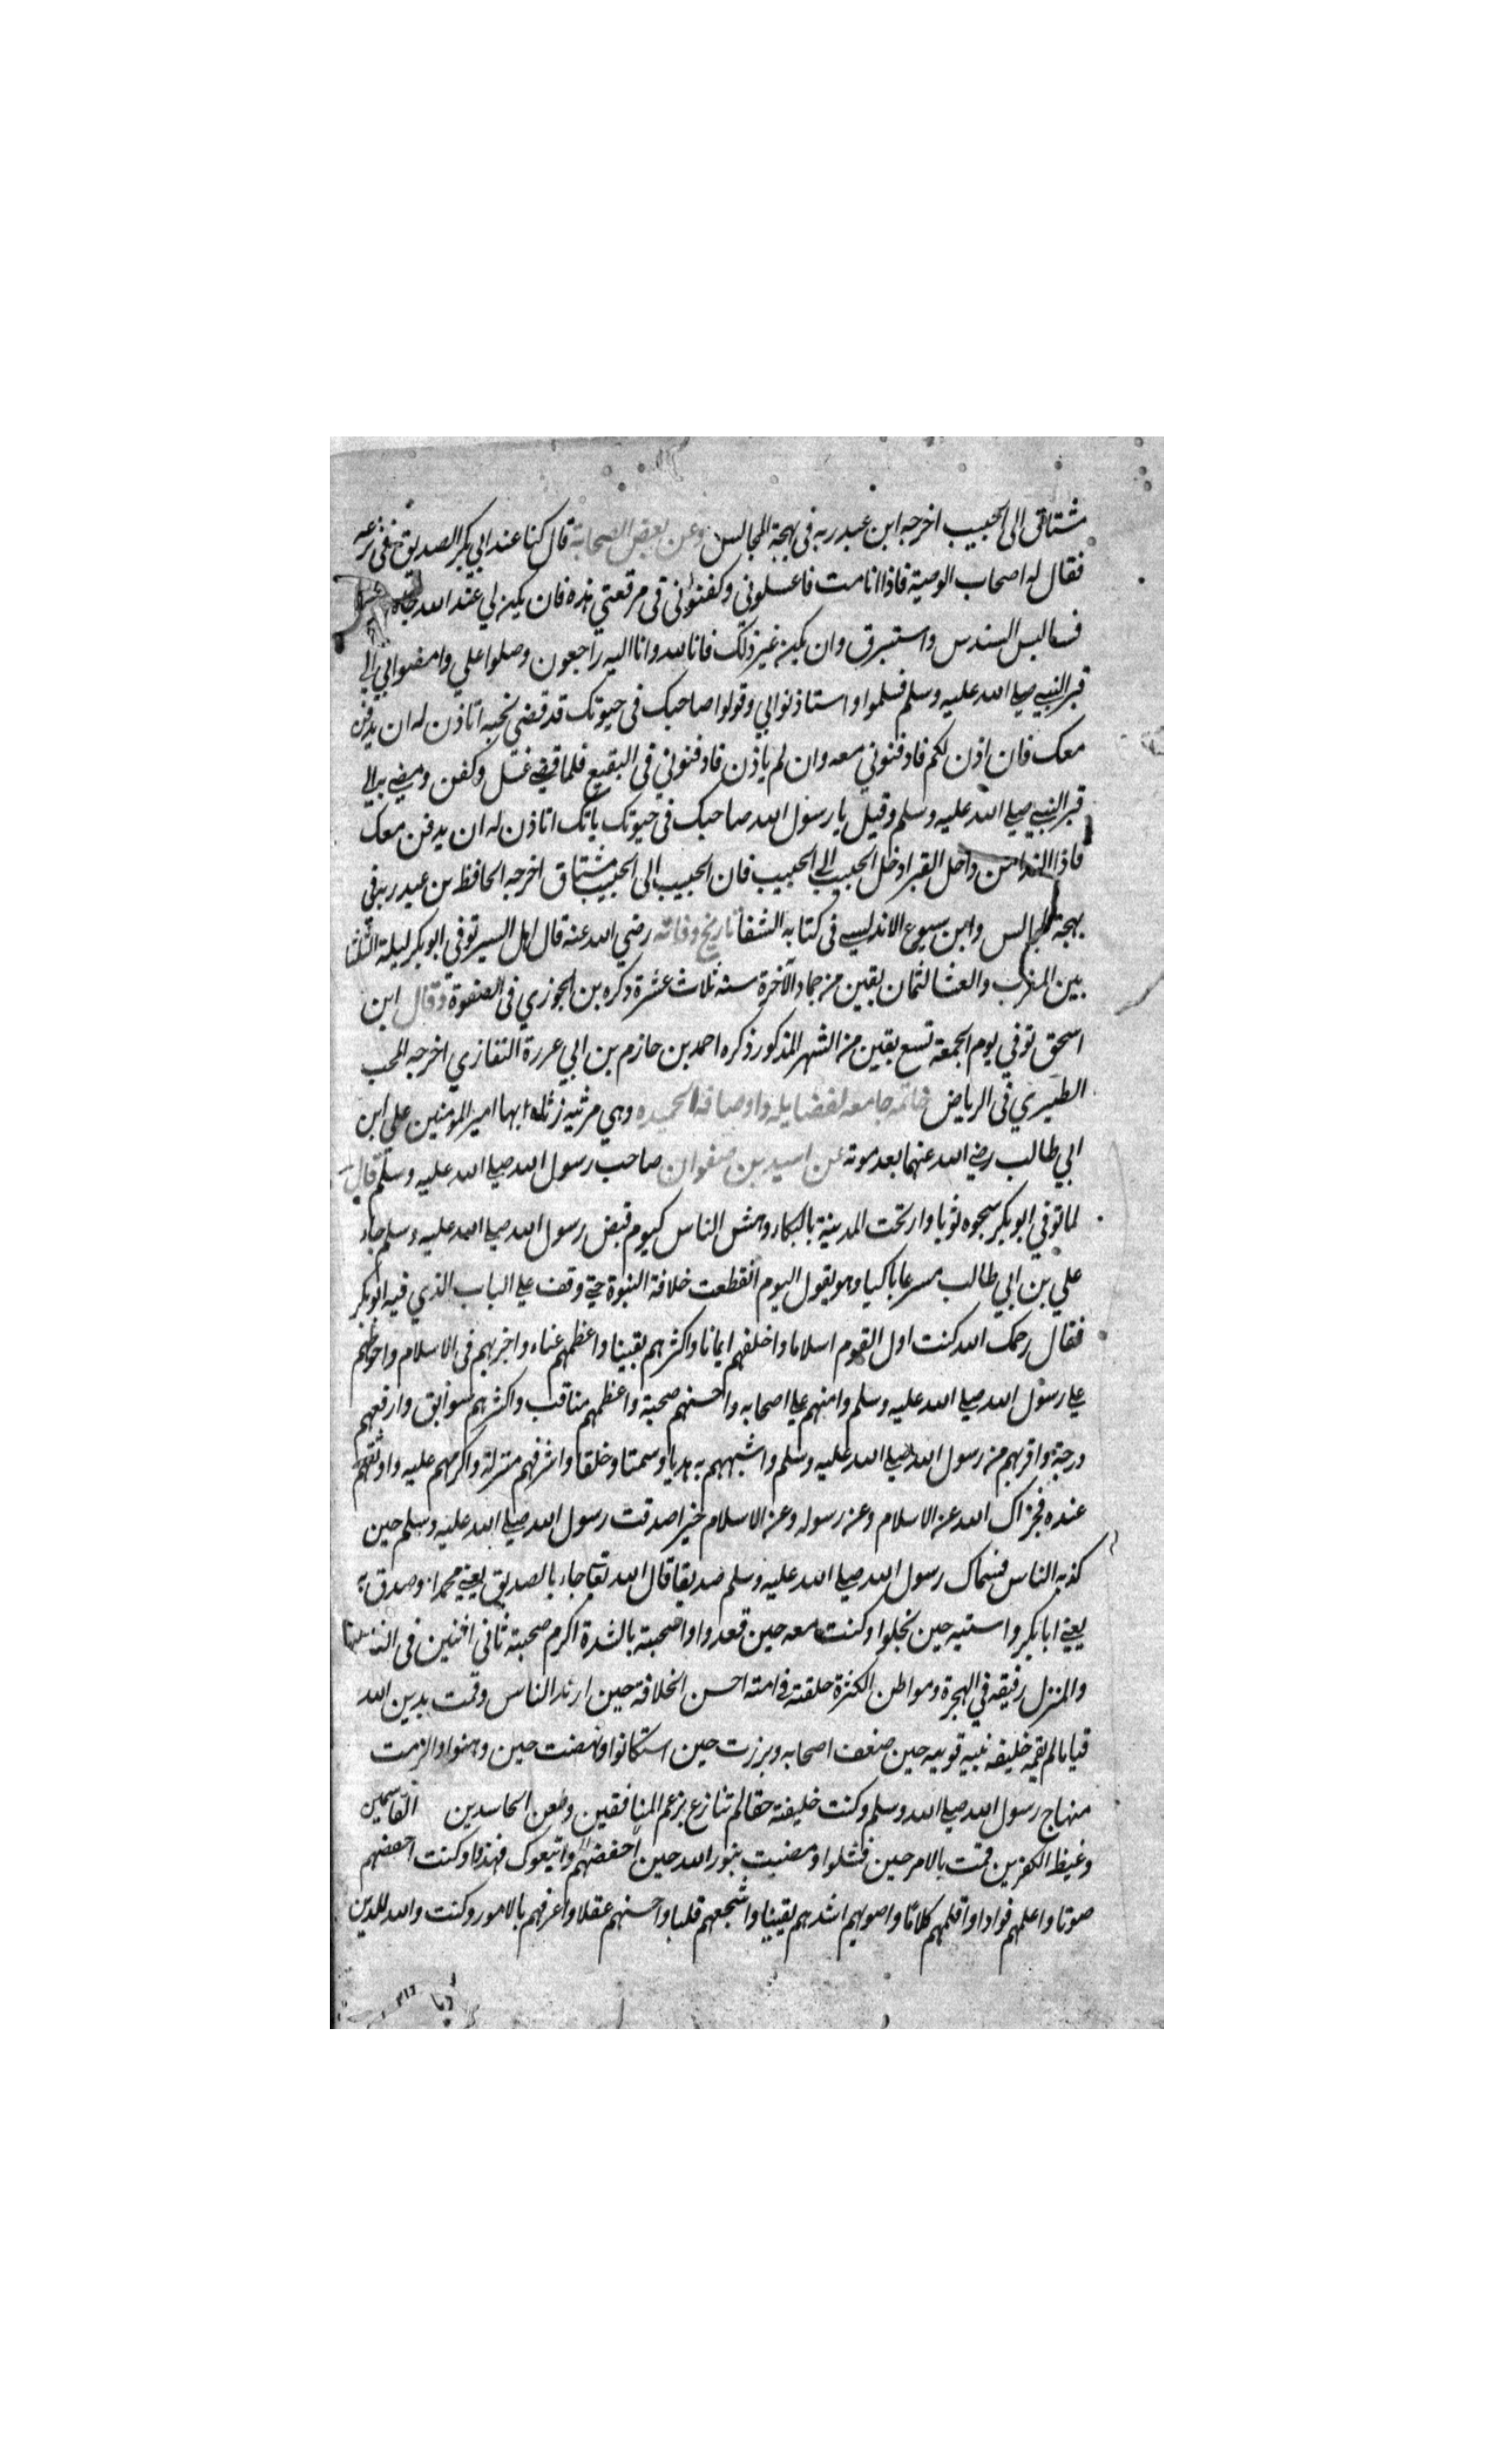 مشتاق الى الحبيب اخرجه ابن عبد ربه فى بهجة المجالس وعن بعض الصحابة قال كنا عند ابي بكر الصديق فى نزعه
فقال له اصحاب الوصية فاذا انا مت فاغسلوني وكفنوني فى مرقعتي هذه فان يكن لي عند الله جاه
فسالبس السندس واستبرق وان يكن غير ذلك فانا لله وانا اليه راجعون وصلوا علي وامضوا بي الي
قبر النبي صلي الله عليه وسلم فسلموا واستاذنوا لي وقولوا صاحبك فى حيوتك قد قضي نحبه اتاذن له ان يدفن
معك فان اذن لكم فادفنوني معه وان لم ياذن فادفنوني فى البقيع فلما قضي غسل وكفن ومضي به الي
قبر النبي صلي الله عليه وسلم وقيل يا رسول الله صاحبك فى حيوتك اتاذن له ان يدفن معك
فاذا الندا من داخل القبر ادخل الحبيب الي الحبيب فان الحبيب الى الحبيب مشتاق اخرجه الحافظ بن عبد ربه فى
بهجة المجالس وابن سبوع الاندلسي فى كتابه الشفا تاريخ وفاته رضي الله عنه قال اهل السير توفي ابو بكر ليلة الثلثا
بين المغرب والعشا لثمان بقين من جماد الآخرة سنه ثلاث عشرة ذكره بن الجوزي فى الصفوة وقال ابن
اسحق توفي يوم الجمعة تسع بقين من الشهر المذكور ذكره احمد بن حازم بن ابي عررة التفازي اخرجه المحب
الطبري فى الرياض خاتمه جامعه لفضايله واوصافه الحميده وهي مرثيه رثاه بها امير المومنين علي ابن
ابي طالب رضي الله عنهما بعد موته عن اسيد بن صفوان صاحب رسول الله صلي الله عليه وسلم قال
لما توفي ابو بكر سجوه ثوبا وارتجت المدينة بالبكاء ودهش الناس كيوم قبض رسول الله صلي الله عليه وسلم جاء
علي بن ابي طالب مسرعا باكيا وهو يقول اليوم انقطعت خلافة النبوة حتي وقف علي الباب الذي فيه ابو بكر
فقال رحمك الله كنت اول القوم اسلاما واخلفهم ايمانا واكثرهم يقينا واعظمهم عناء واخربهم فى الاسلام واحوطهم
علي رسول الله صلي الله عليه وسلم وامنهم علي اصحابه واحسنهم صحبة واعظمهم مناقب واكثرهم سوابق وارفعهم
درجة واقربهم من رسول الله صلي الله عليه وسلم واشبههم به هديا وسمتا وخلقا واشرفهم منزلة واكرمهم عليه واوثقهم
عنده فجزاك الله عن الاسلام وعن رسوله وعن الاسلام خيرا صدقت رسول الله صلي الله عليه وسلم حين
كذبه الناس فسماك رسول الله صلي الله عليه وسلم صديقا قال الله تعا جاء بالصديق يعني محمدا وصدق به
يعني ابا بكر واستيه حين بخلوا وكنت معه حين قعدوا واصحبته بالشدة اكرم صحبته ثاني اثنين فى
والمنزل رفيقه في الهجرة ومواطن الكثرة خلقته في امته احسن الخلافة حين ارتد الناس وقمت بدين الله
قياما لم يقمه خليفه نبيه قويه حين ضعف اصحابه وبرزت حين استكانوا ونهضت حين وهنوا والزمت
منهاج رسول الله صلي الله وسلم وكنت خليفته حقا لم تنازع بزعم المنافقين وطعن الحاسدين الفاسقين
وغيظ الكفرين قمت بالامر حين فشلوا ومضيت بنور الله حين احفضهم واتبعوك فهدوا وكنت اخفضهم
صوتا واعلمهم فوادا واقلهم كلاما واصوبهم اشدهم يقينا واشجعهم قلبا واحسنهم عقلا واعرفهم بالامور وكنت والله للدين